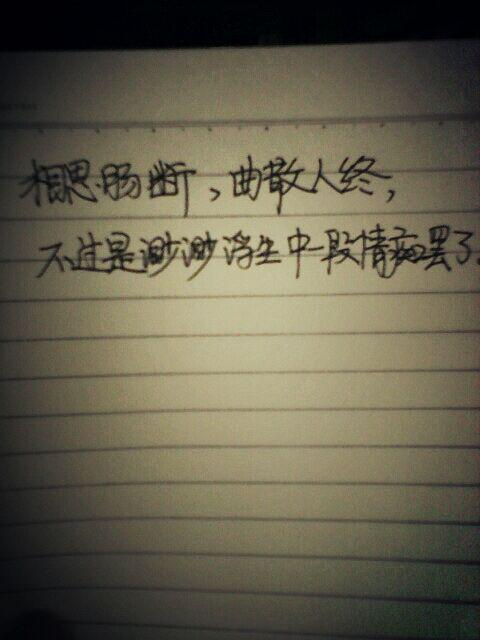 相思肠断，曲散人终，
不过是渺渺浮生中一段情痴罢了.